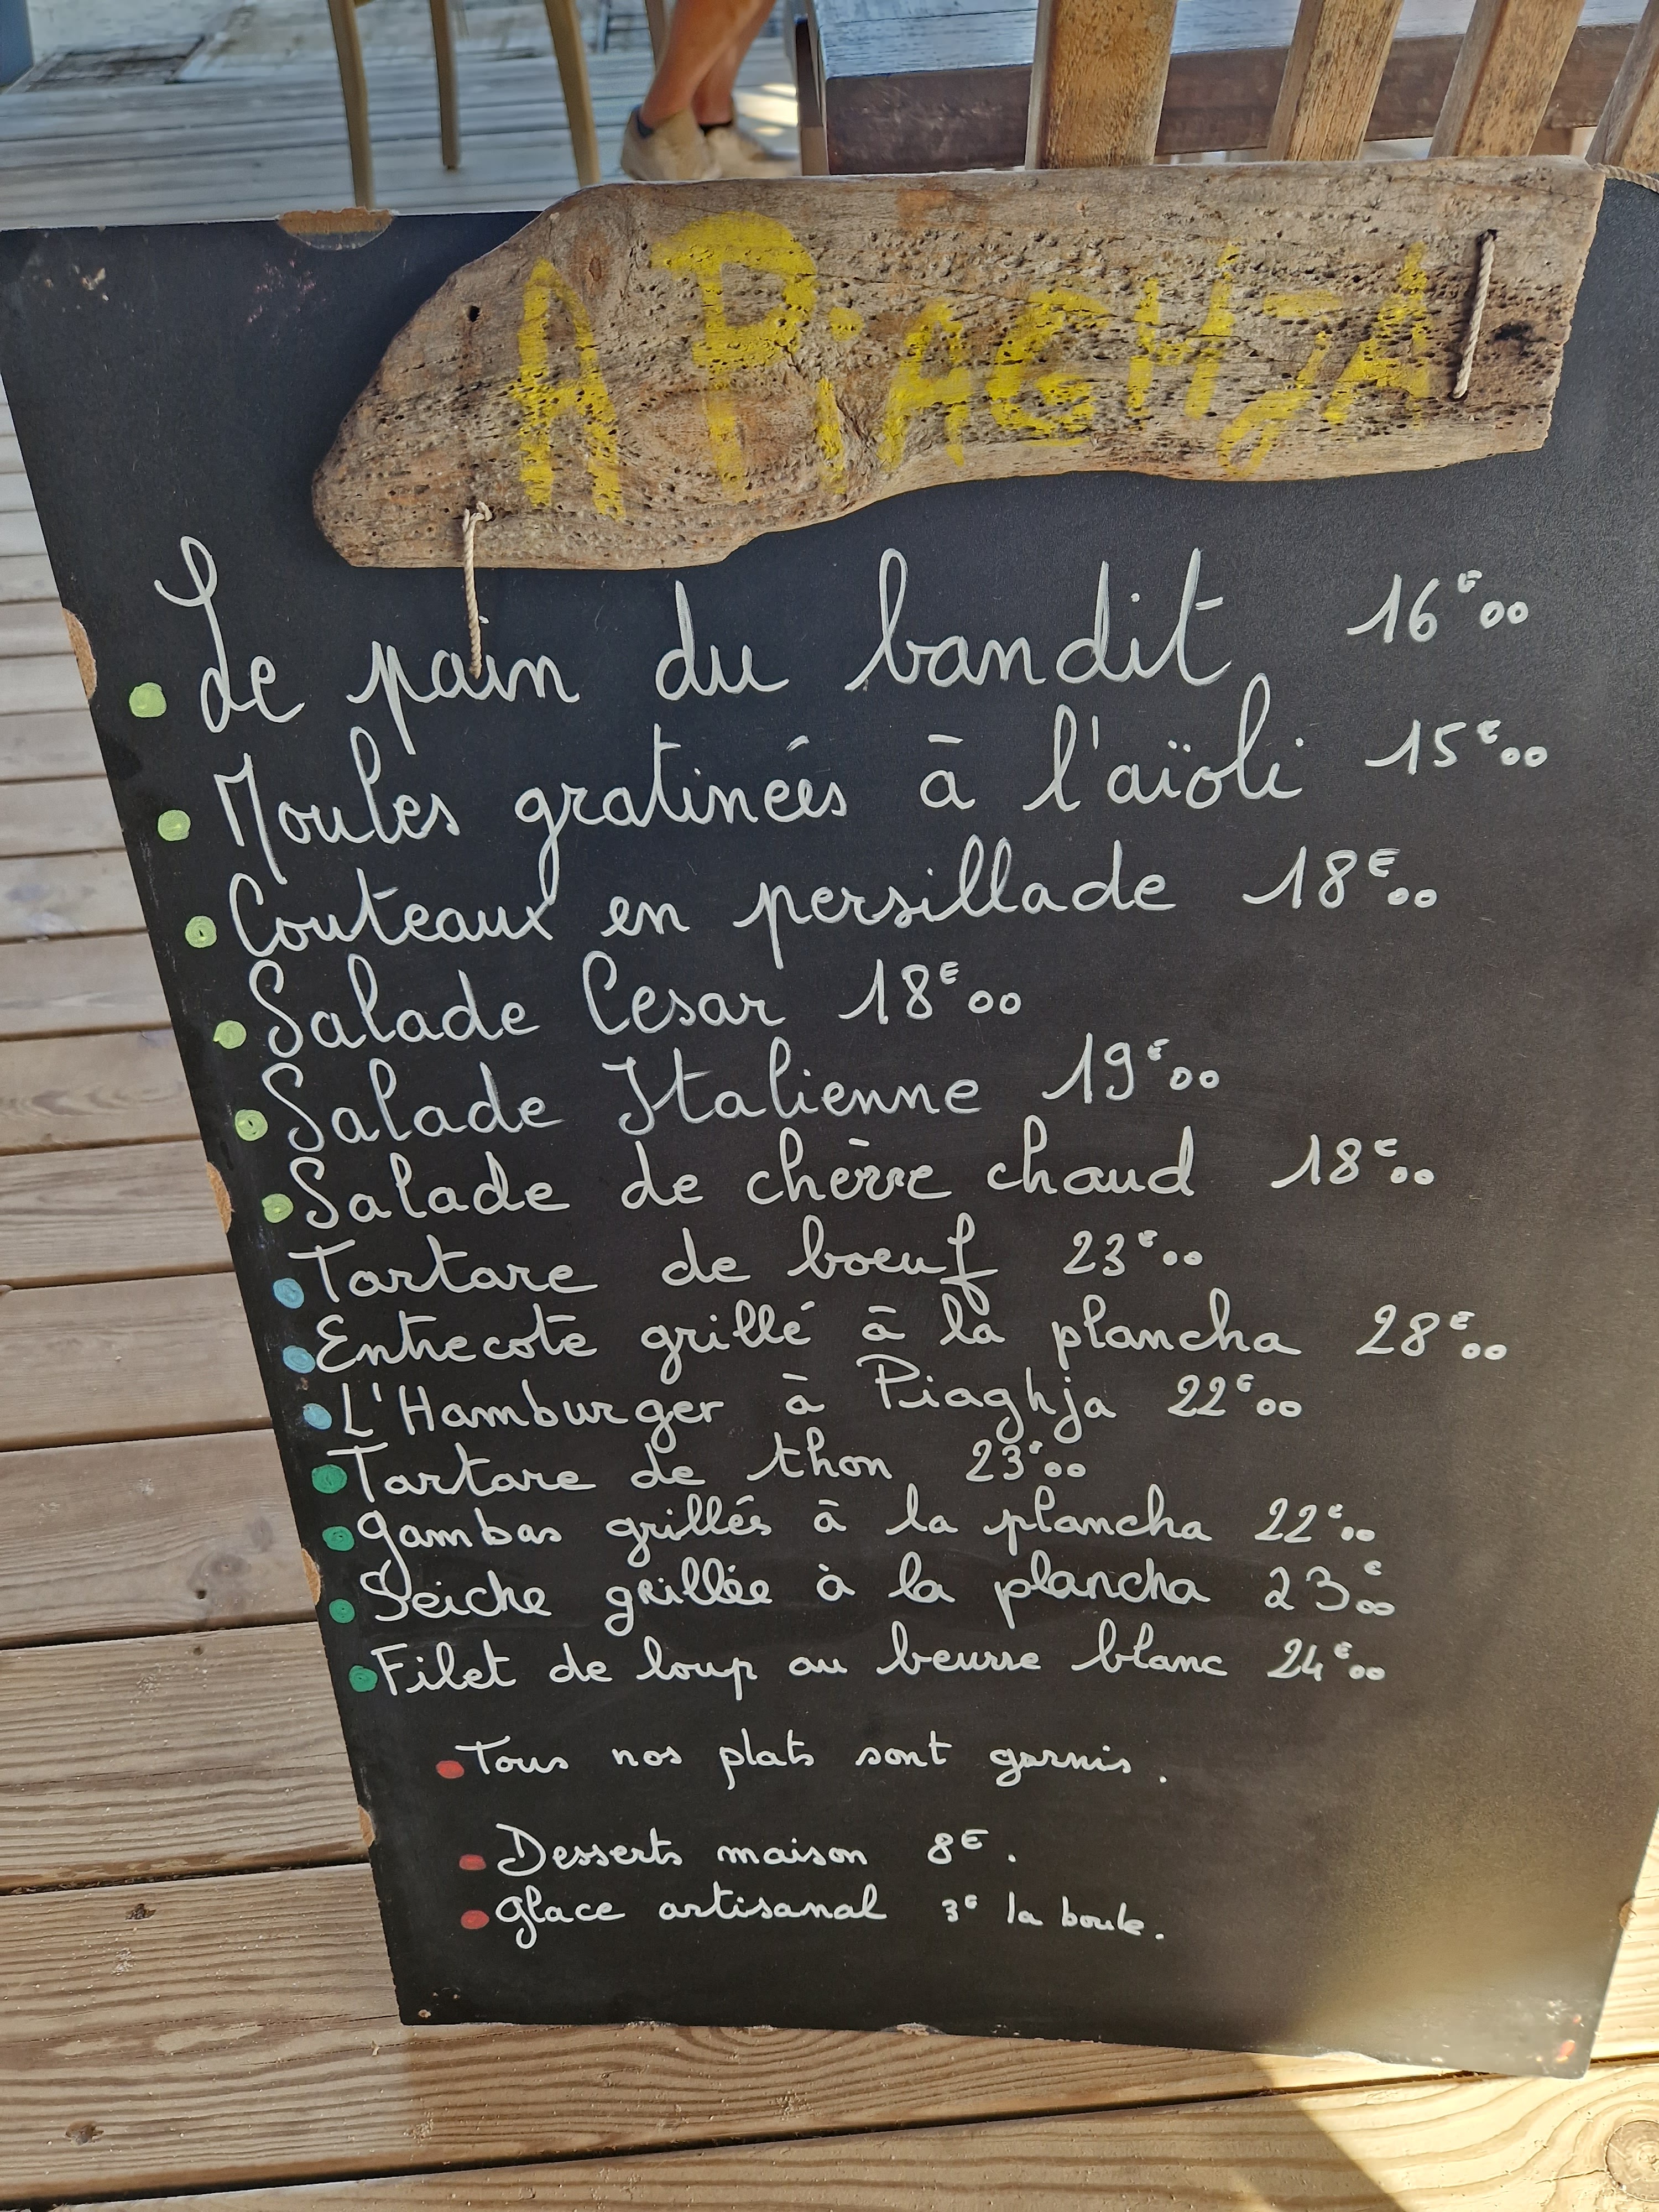 A PiAGHJA
Le pain du bandit 16€00
Moules gratinéés à l'aïoli 15€00
Couteaux en persillade 18€00
Salade Cesar 18€00
Salade Italienne 19€00
Salade de chèvre chaud 18€00
Tartare de boeuf 23€00
Entrecote grillé à la plancha 28€00
L'Hamburger à Piaghja 22€00
Tartare de thon 23€00
Gambas grillés à la plancha 22€00
Seiche grillée à la plancha 23€00
Filet de loup au beurre blanc 24€00
Tous nos plats sont garnis.
Desserts maison 8€.
Glace artisanal 3€ la boule.